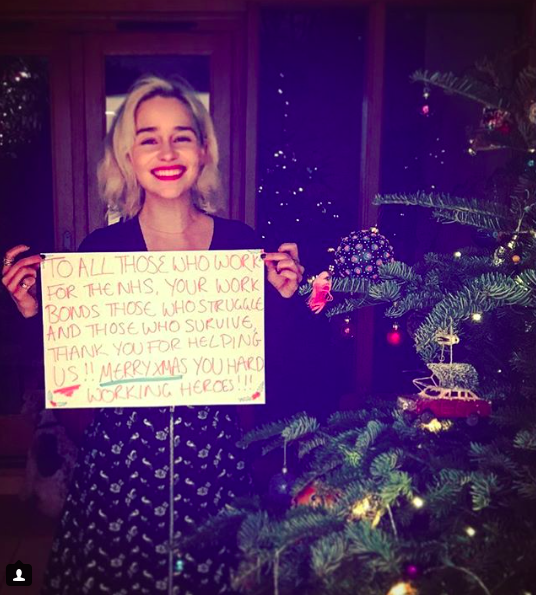 TO ALL THOSE WHO WORK
FOR THE NHS, YOUR WORK
BONDS THOSE WHO STRUGGLE
AND THOSE WHO SURVIVE,
THANK YOU FOR HELPING
US!! MERRY XMAS YOU HARD
WORKING HEROES!!!